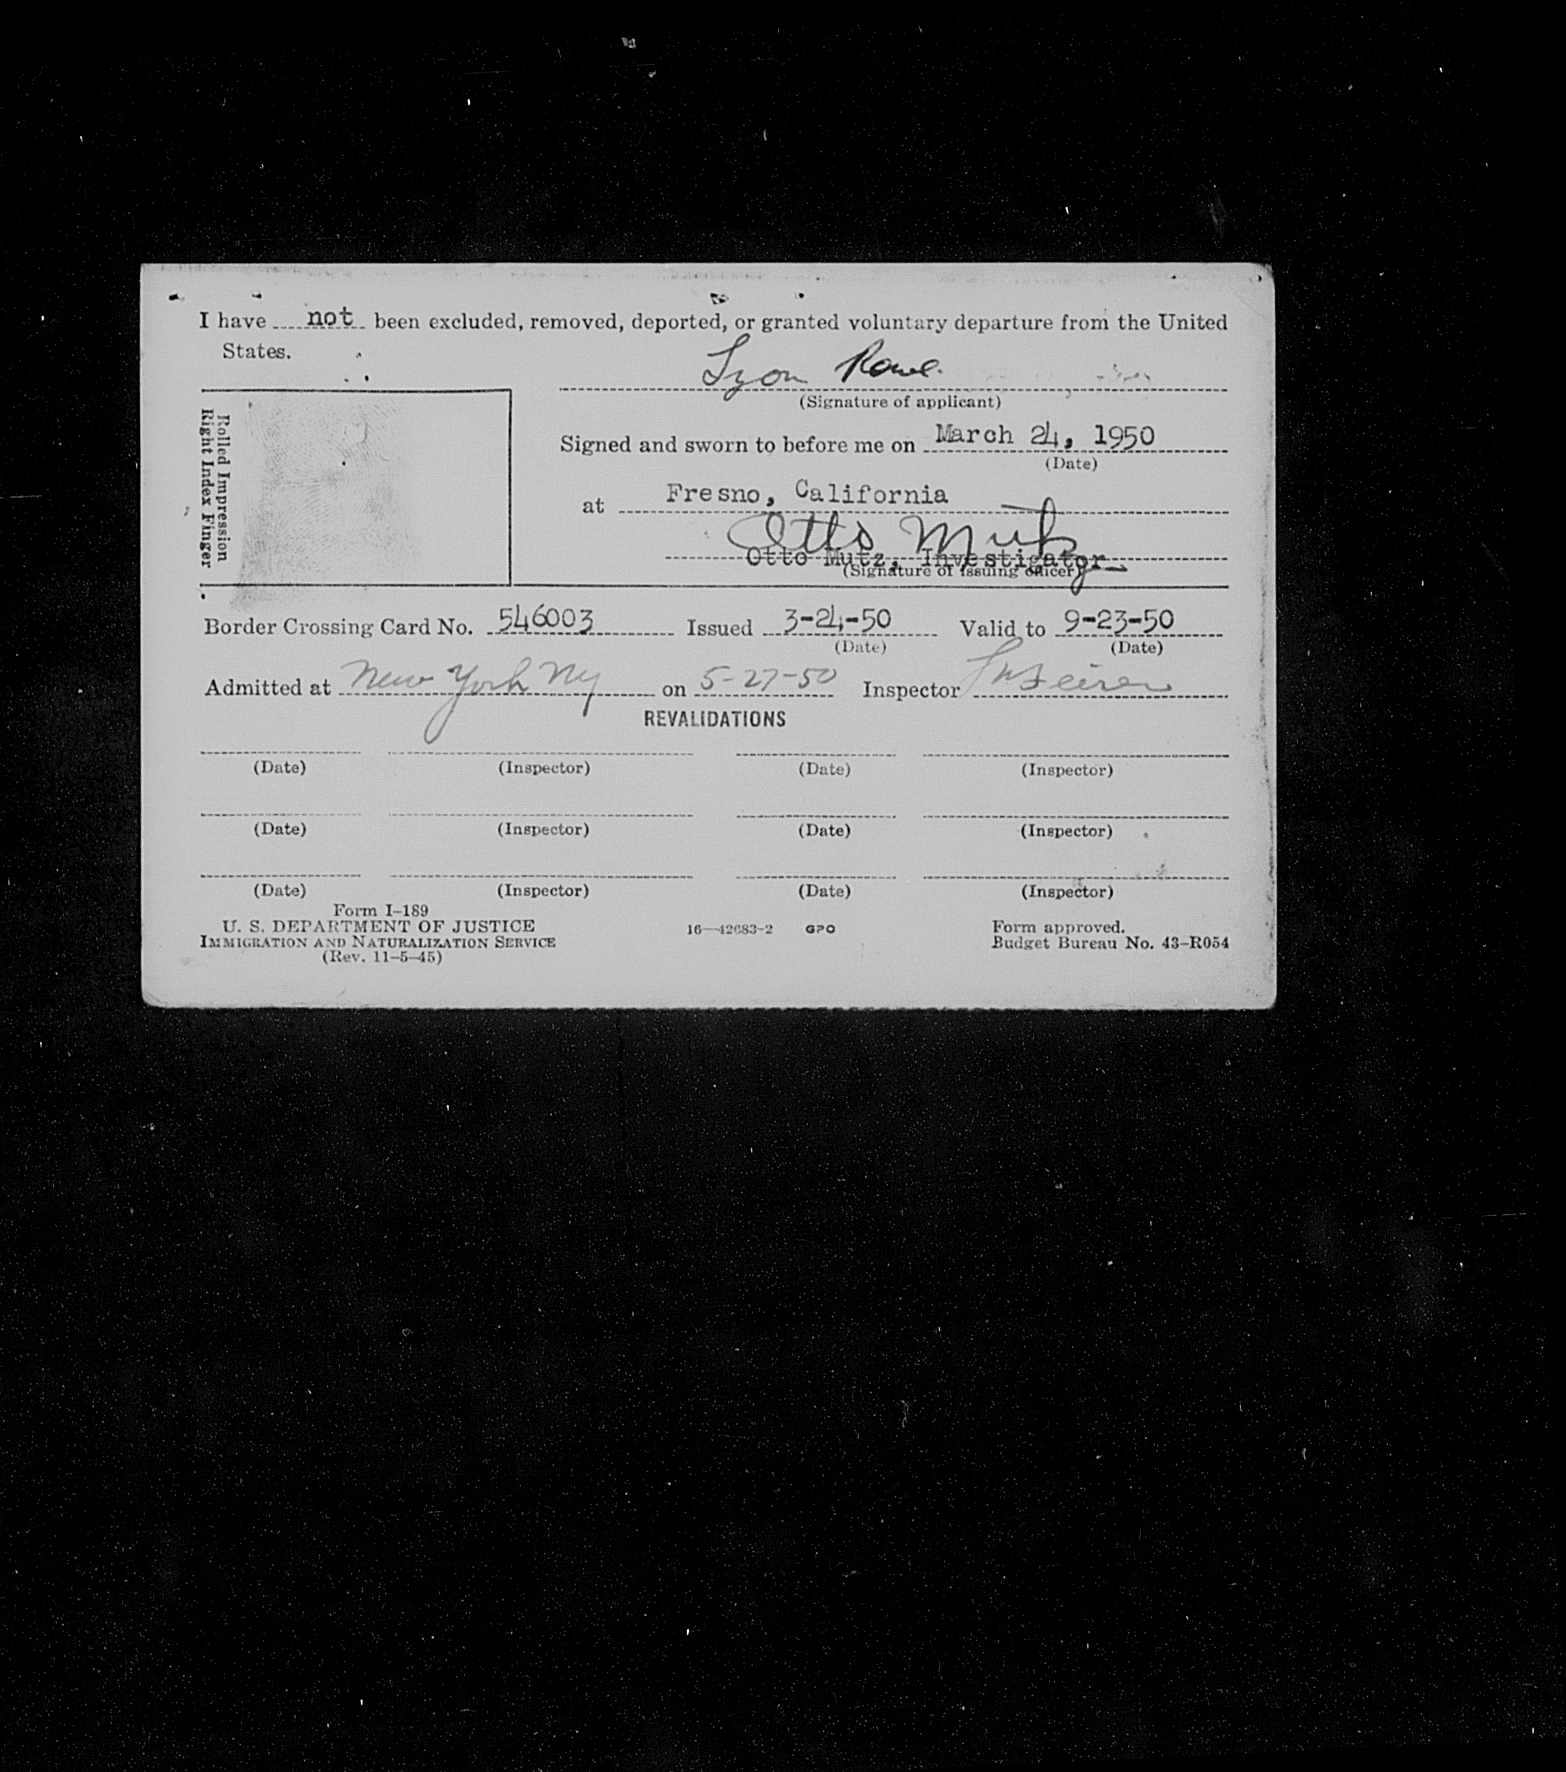 I have not been excluded, removed, deported, or granted voluntary departure from the United
States.
Rolled Impression
Right Index Finger
(Signature of applicant)
Signed and sworn to before me on March 24, 1950
(Date)
at Fresno, California
Otto Mutz
Otto Mutz, Investigator
(Signature of issuing officer)
Border Crossing Card No. 546003 Issued 3-24-50 Valid to 9-23-50
(Date) (Date)
Admitted at New York NY on 5-27-50 Inspector
REVALIDATIONS
(Date) (Inspector) (Date) (Inspector)
(Date) (Inspector) (Date) (Inspector)
(Date) (Inspector) (Date) (Inspector)
Form I-189
U. S. DEPARTMENT OF JUSTICE
IMMIGRATION AND NATURALIZATION SERVICE
(Rev. 11-5-45)
16—42683-2 GPO
Form approved.
Budget Bureau No. 43-R054